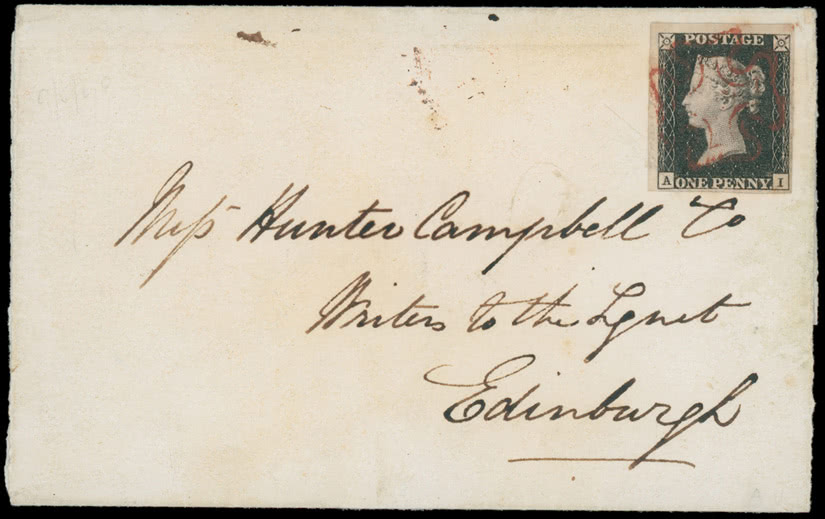 POSTAGE
A ONE PENNY I
Messrs Hunter Campbell Co
Writers to the Signet
Edinburgh